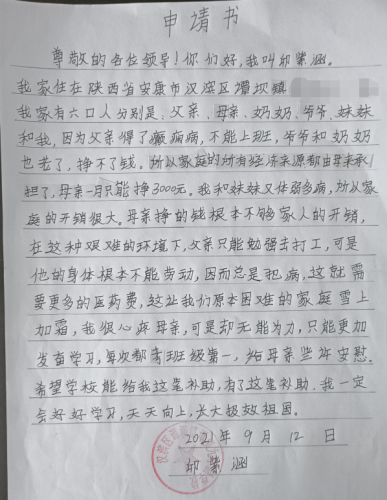 申请书
尊敬的各位领导!你们好,我叫邱紫涵。
我家住在陕西省安康市汉滨区谭坝镇
我家有六口人分别是、父亲、母亲、奶奶、爷爷、妹妹
和我,因为父亲得了癫痫病,不能上班,爷爷和奶奶
也老了,挣不了钱。所以家庭的所有经济来源都由母亲承
担了,母亲一月只能挣3000元。我和妹妹又体弱多病,所以家
庭的开销很大。母亲挣的钱根本不够家人的开销,
在这种艰难的环境下,父亲只能勉强去打工,可是
他的身体根本不能劳动,因而总是犯病,这就需
要更多的医药费,这让我们原本困难的家庭雪上
加霜,我很心疼母亲,可是却无能为力,只能更加
发奋学习,每次都考班级第一,给母亲些许安慰。
希望学校能给我这笔补助,有了这笔补助、我一定
会好好学习,天天向上,长大报效祖国。
2021年9月12日
邱紫涵